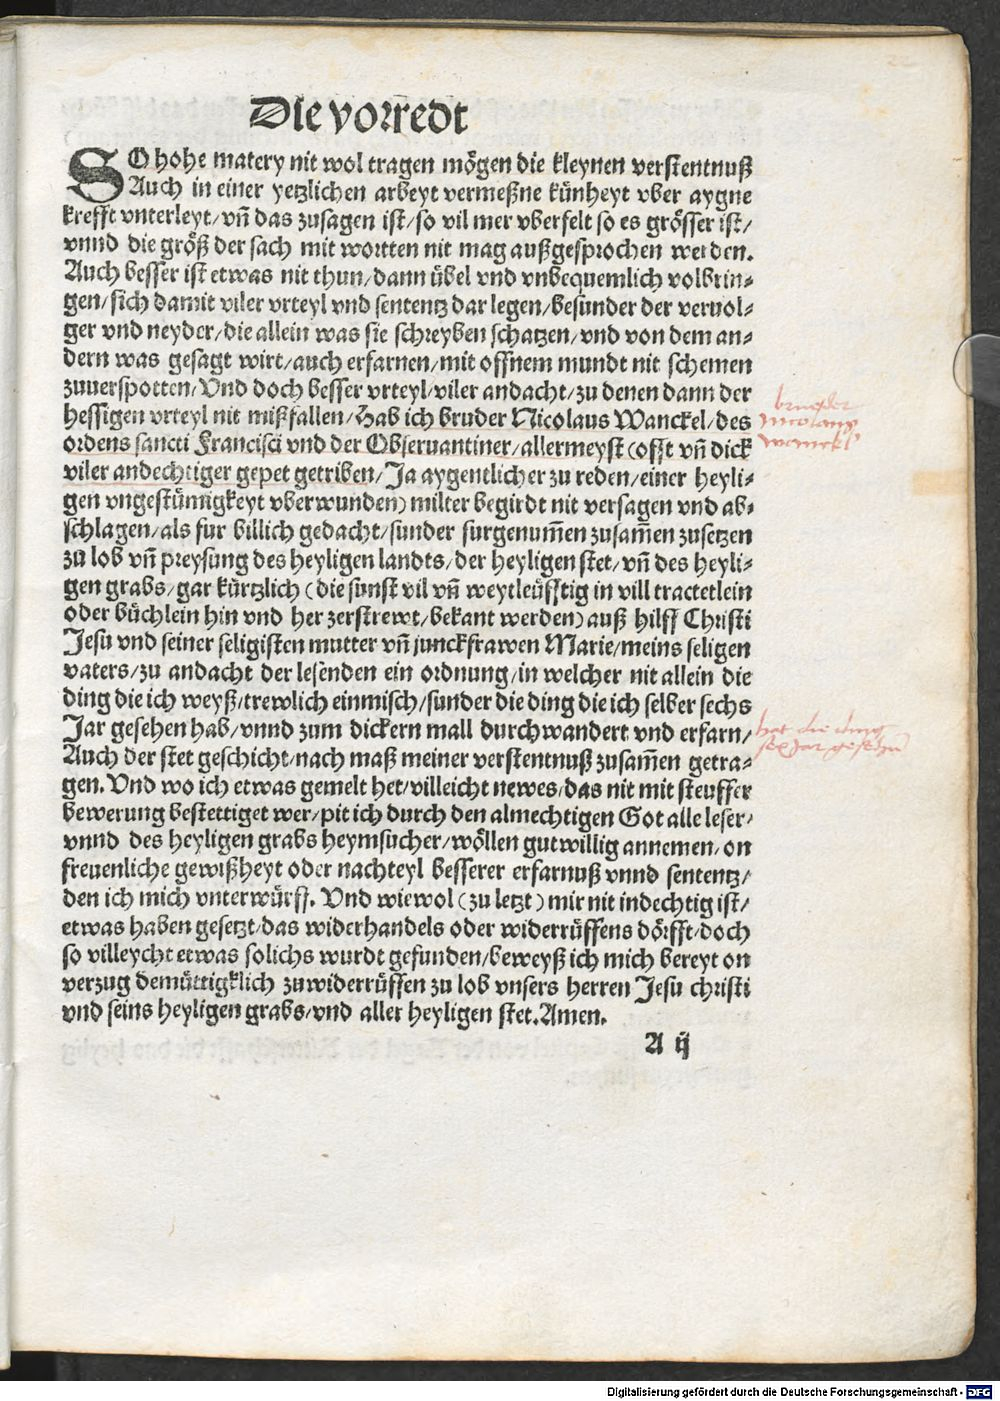 Die vorredt
SO hohe matery nit wol tragen mögen die kleynen verstentnuß
Auch in einer yetzlichen arbeyt vermeßne künheyt vber aygne
krefft vnterleyt/vn̄ das zusagen ist/so vil mer vberfelt so es grösser ist/
vnnd die größ der sach mit wortten nit mag außgesprochen werden.
Auch besser ist etwas nit thun/dann übel vnd vnbequemlich volbrin⸗
gen/sich damit viler vrteyl vnd sententz dar legen/besunder der veruol⸗
ger vnd neyder/die allein was sie schreyben schatzen/vnd von dem an⸗
dern was gesagt wirt/auch erfarnen/mit offnem mundt nit schemen
zuuerspotten/Vnd doch besser vrteyl/viler andacht/zu denen dann der
hessigen vrteyl nit mißfallen/Hab ich bruder Nicolaus Wanckel/des
ordens sancti Francisci vnd der Obseruantiner/allermeyst (offt vn̄ dick
viler andechtiger gepet getriben/Ja aygentlicher zu reden/einer heyli⸗
gen vngestümigkeyt vberwunden) milter begirdt nit versagen vnd ab⸗
schlagen/als fur billich gedacht/sunder furgenum̄en zusam̄en zusetzen
zu lob vn̄ preysung des heyligen landts/der heyligen stet/vn̄ des heyli⸗
gen grabs/gar kürtzlich (die sunst vil vn̄ weytleüfftig in vill tractetlein
oder büchlein hin vnd her zerstrewt/bekant werden) auß hilff Christi
Jesu vnd seiner seligisten mutter vn̄ junckfrawen Marie/meins seligen
vaters/zu andacht der lesenden ein ordnung/in welcher nit allein die
ding die ich weyß/trewlich einmisch/sunder die ding die ich selber sechs
Jar gesehen hab/vnnd zum dickern mall durchwandert vnd erfarn/
Auch der stet geschicht/nach maß meiner verstentnuß zusam̄en getra⸗
gen. Vnd wo ich etwas gemelt het/villeicht newes/das nit mit steuffer
bewerung bestettiget wer/pit ich durch den almechtigen Got alle leser/
vnnd des heyligen grabs heymsucher/wöllen gutwillig annemen/on
freuenliche gewißheyt oder nachteyl besserer erfarnuß vnnd sententz/
den ich mich vnterwürff. Vnd wiewol (zu letzt) mir nit indechtig ist/
etwas haben gesetzt/das widerhandels oder widerrüffens dörfft/doch
so villeycht etwas solichs wurdt gefunden/beweyß ich mich bereyt on
verzug demüttigklich zuwiderrüffen zu lob vnsers herren Jesu christi
vnd seins heyligen grabs/vnd aller heyligen stet.Amen.
A ij
brueder
nicolaus
wanckl
hat die ding
sex Jar gesehn̄
Digitalisierung gefördert durch die Deutsche Forschungsgemeinschaft - DFG